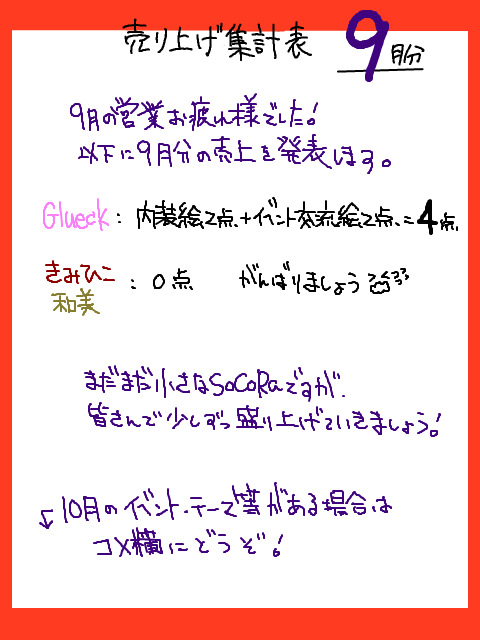 売り上げ集計表 9月分
9月の営業お疲れ様でした!
以下に9月分の売上を発表します。
Glueck : 内装絵2点+イベント交流絵2点=4点.
きみひこ
和美 : 0点 がんばりましょう
まだまだ小さなSoCoRaですが、
皆さんで少しずつ盛り上げていきましょう!
↓10月のイベント・テーマ等がある場合は
コメ欄にどうぞ!